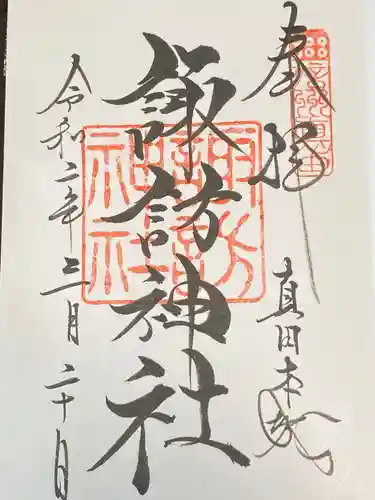 奉拝
真田本城
諏訪神社
諏訪
神社
令和二年三月二十日